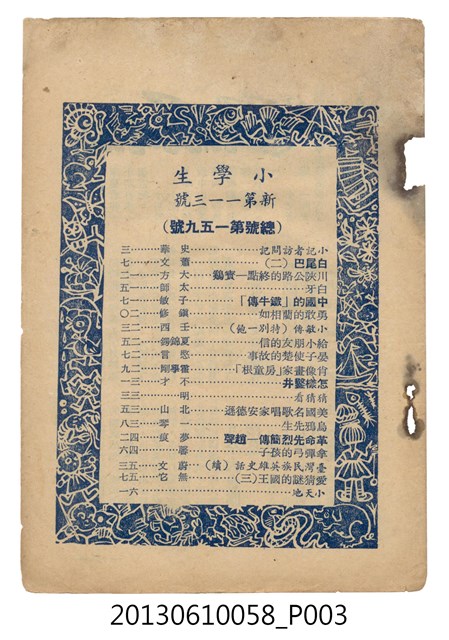 小學生
新第一一三號
（總號第一五九號）
小記者訪問記………史………三
白尾巴（二）………蕭 文………七
川陝公路的終點—寶鷄………方 大………一二
白牙………師 太………一五
中國的「鐵牛傳」………子 敏………一七
勇敢的藺相如………鎭 修………二〇
小敏傳（特別一砲）………壬 四………二三
給小朋友的信………夏錦鍔………二五
晏子使楚的故事………言………二七
肖像畫家「房童根」………雷學剛………二九
怎樣鑿井………不 才………三一
猜猜看………明………三三
美國名歌唱家安德遜………山 北………三五
烏鴉先生………琴 一………三八
革命先烈簡傳—趙聲………瘋 夢………四二
拿彈弓的孩子………馨………四六
臺灣民族英雄史話（續）………蔚 文………五三
愛猜謎的國王（三）………無 它………五七
小天地………六一
20130610058_P003